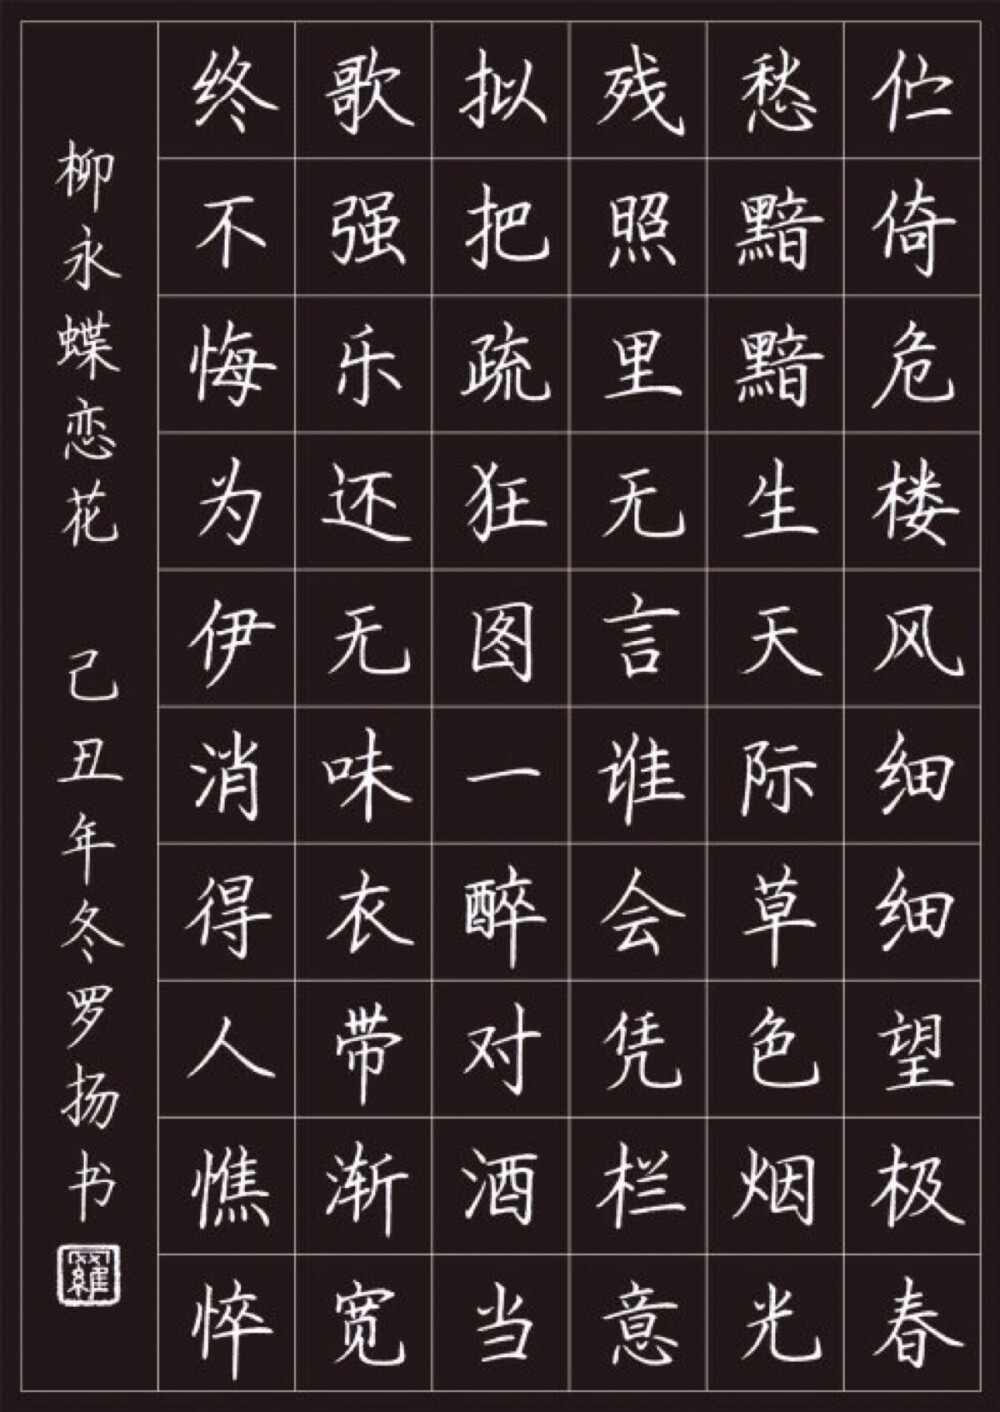 伫倚危楼风细细望极春
愁黯黯生天际草色烟光
残照里无言谁会凭栏意
拟把疏狂图一醉对酒当
歌强乐还无味衣带渐宽
终不悔为伊消得人憔悴
柳永蝶恋花 己丑年冬罗扬书
羅